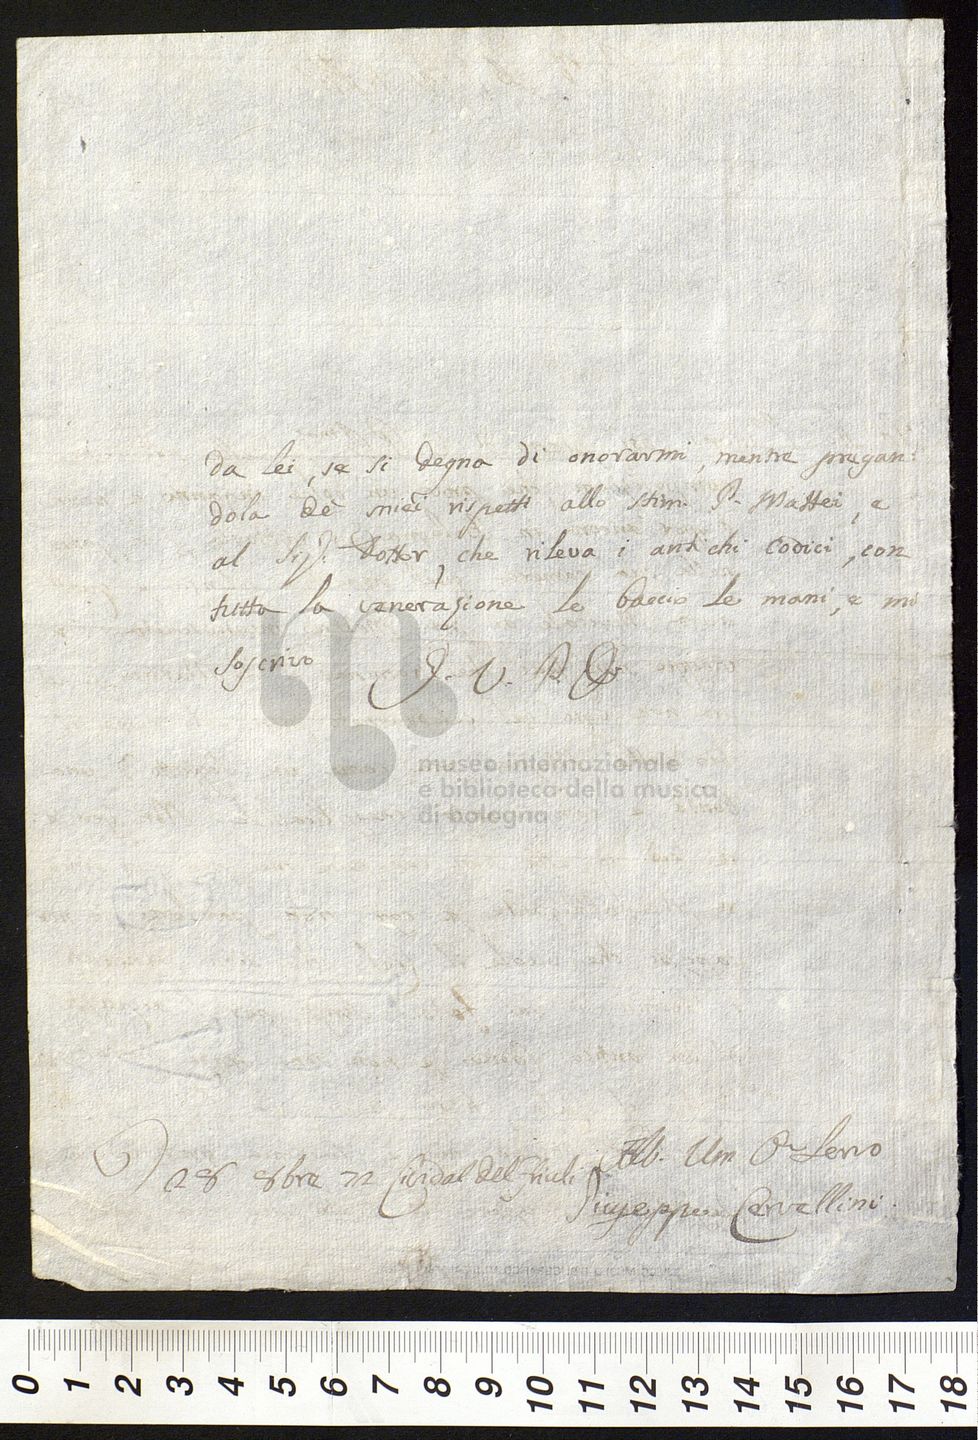 da lei, se si degna di onorarmi, mentre pregan-
dola de' miei rispetti allo stim. P. Mattei, e
al Sig. Dottr, che rileva i antichi codici, con
tutta la venerazione le baccio le mani, e mi
soscrivo
museo internazionale
e biblioteca della musica
di bologna
28 8bre 72 Cividal del Friuli
Um Servo
Giuseppe Cervellini
0 1 2 3 4 5 6 7 8 9 10 11 12 13 14 15 16 17 18